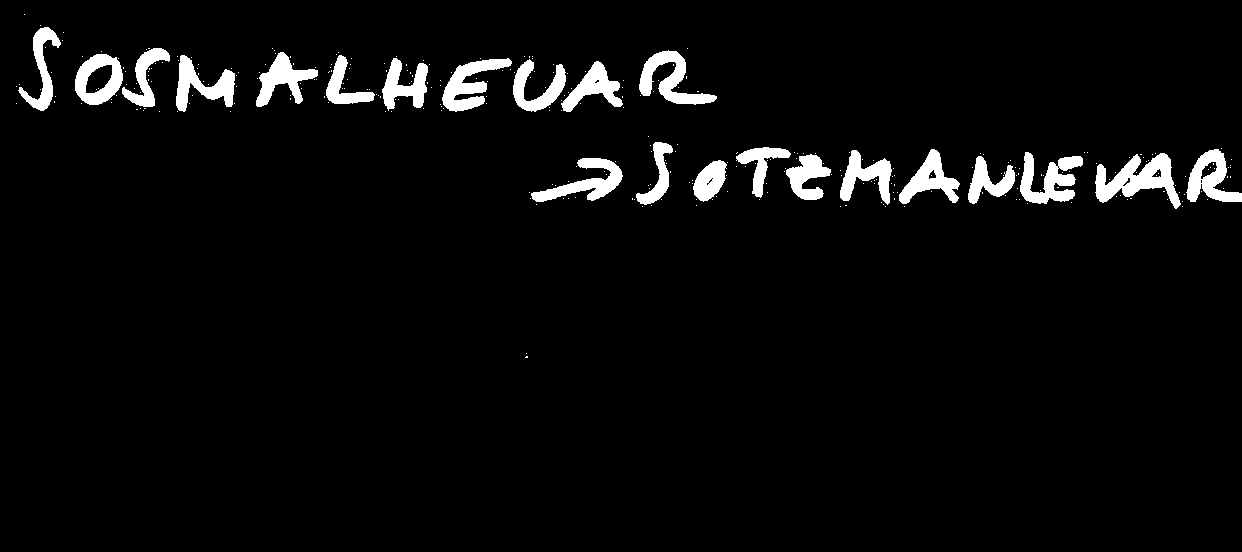 SOSMALHEUAR
→ SOTZMANLEVAR